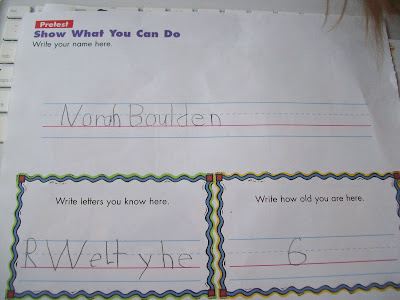 Pretest
Show What You Can Do
Write your name here.
Norah Boulden
Write letters you know here.
Write how old you are here.
R W e l t y h e
6